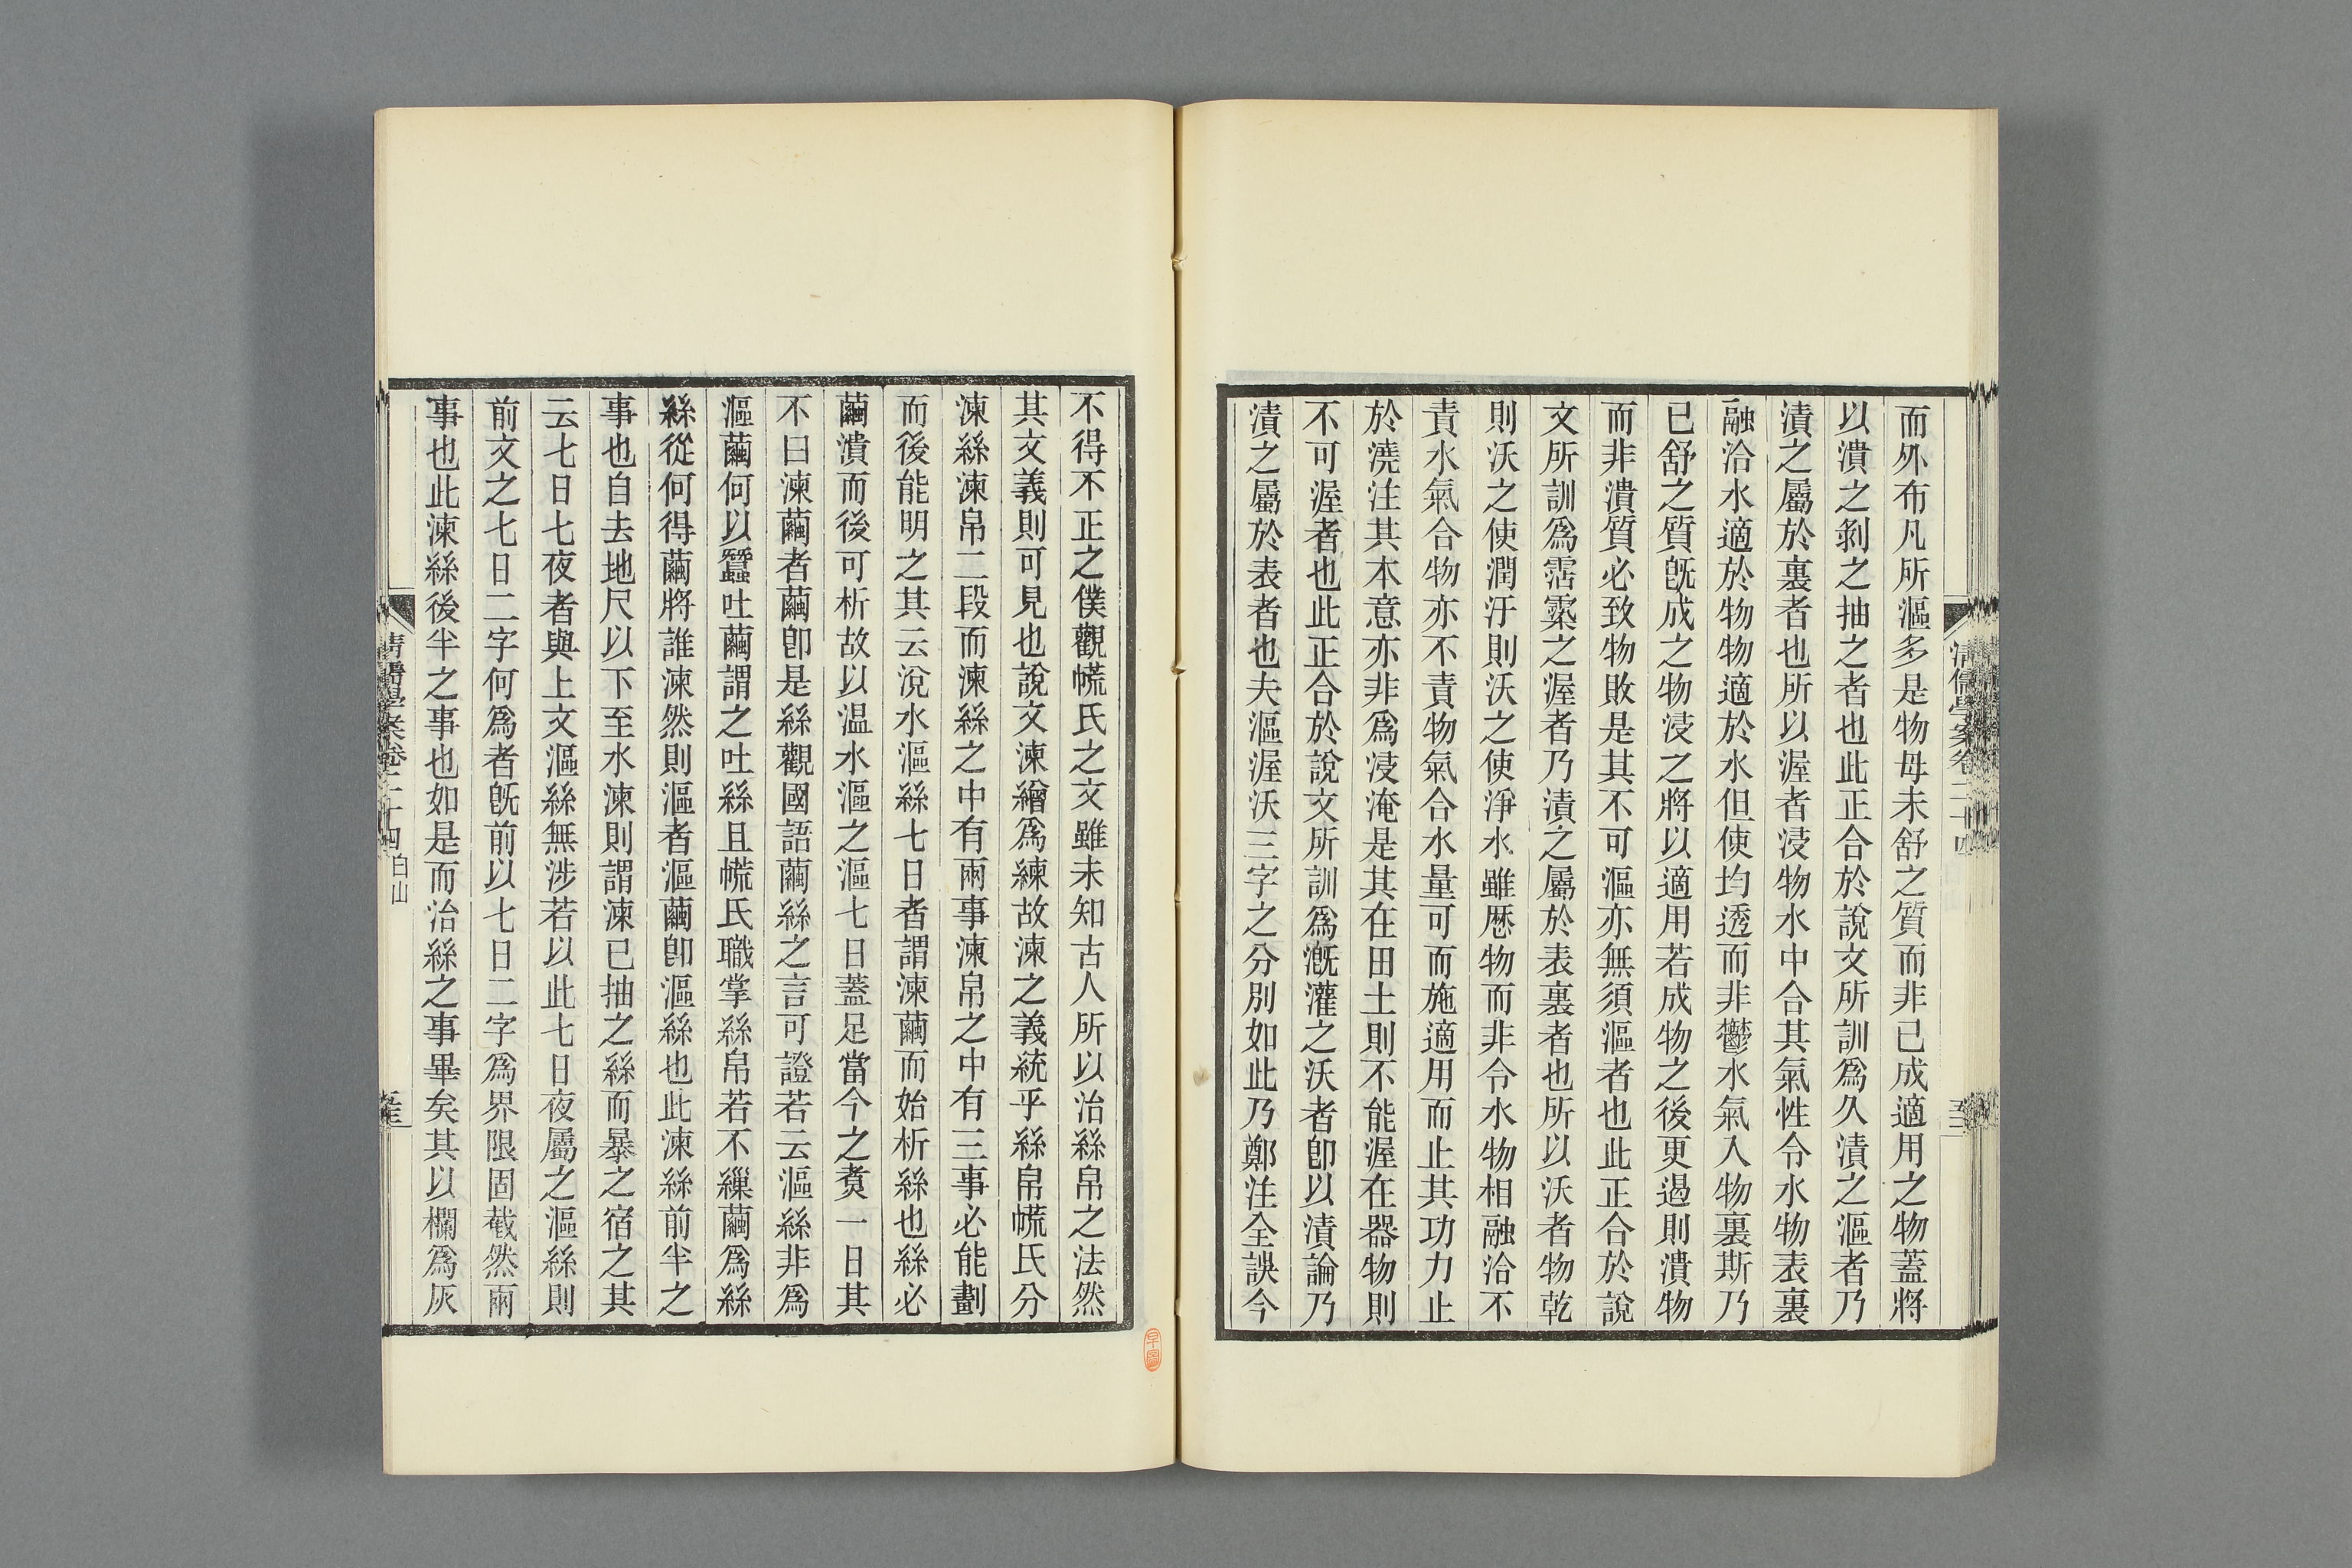 而外布凡所漚多是物毋未舒之質而非已成適用之物蓋將
以潰之剝之抽之者也此正合於說文所訓爲久漬之漚者乃
漬之屬於裏者也所以渥者浸物水中合其氣性令水物表裏
融洽水適於物物適於水但使均透而非鬱水氣入物裏斯乃
已舒之質旣成之物浸之將以適用若成物之後更過則潰物
而非潰質必致物敗是其不可漚亦無須漚者也此正合於說
文所訓爲霑霂之渥者乃漬之屬於表裏者也所以沃者物乾
則沃之使潤汙則沃之使淨水雖歷物而非令水物相融洽不
責水氣合物亦不責物氣合水量可而施適用而止其功力止
於澆注其本意亦非爲浸淹是其在田土則不能渥在器物則
不可渥者也此正合於說文所訓爲漑灌之沃者卽以漬論乃
漬之屬於表者也夫漚渥沃三字之分別如此乃鄭注全誤今
清儒學案卷二十四
不得不正之僕觀㡛氏之文雖未知古人所以治絲帛之法然
其文義則可見也說文湅繒爲練故湅之義統乎絲帛㡛氏分
湅絲湅帛二段而湅絲之中有兩事湅帛之中有三事必能劃
而後能明之其云涗水漚絲七日者謂湅繭而始析絲也絲必
繭潰而後可析故以温水漚之漚七日蓋足當今之煑一日其
不曰湅繭者繭卽是絲觀國語繭絲之言可證若云漚絲非爲
漚繭何以蠶吐繭謂之吐絲且㡛氏職掌絲帛若不繅繭爲絲
絲從何得繭將誰湅然則漚者漚繭卽漚絲也此湅絲前半之
事也自去地尺以下至水湅則謂湅已抽之絲而暴之宿之其
云七日七夜者與上文漚絲無涉若以此七日夜屬之漚絲則
前文之七日二字何爲者旣前以七日二字爲界限固截然兩
事也此湅絲後半之事也如是而治絲之事畢矣其以欄爲灰
清儒學案卷二十四 白山